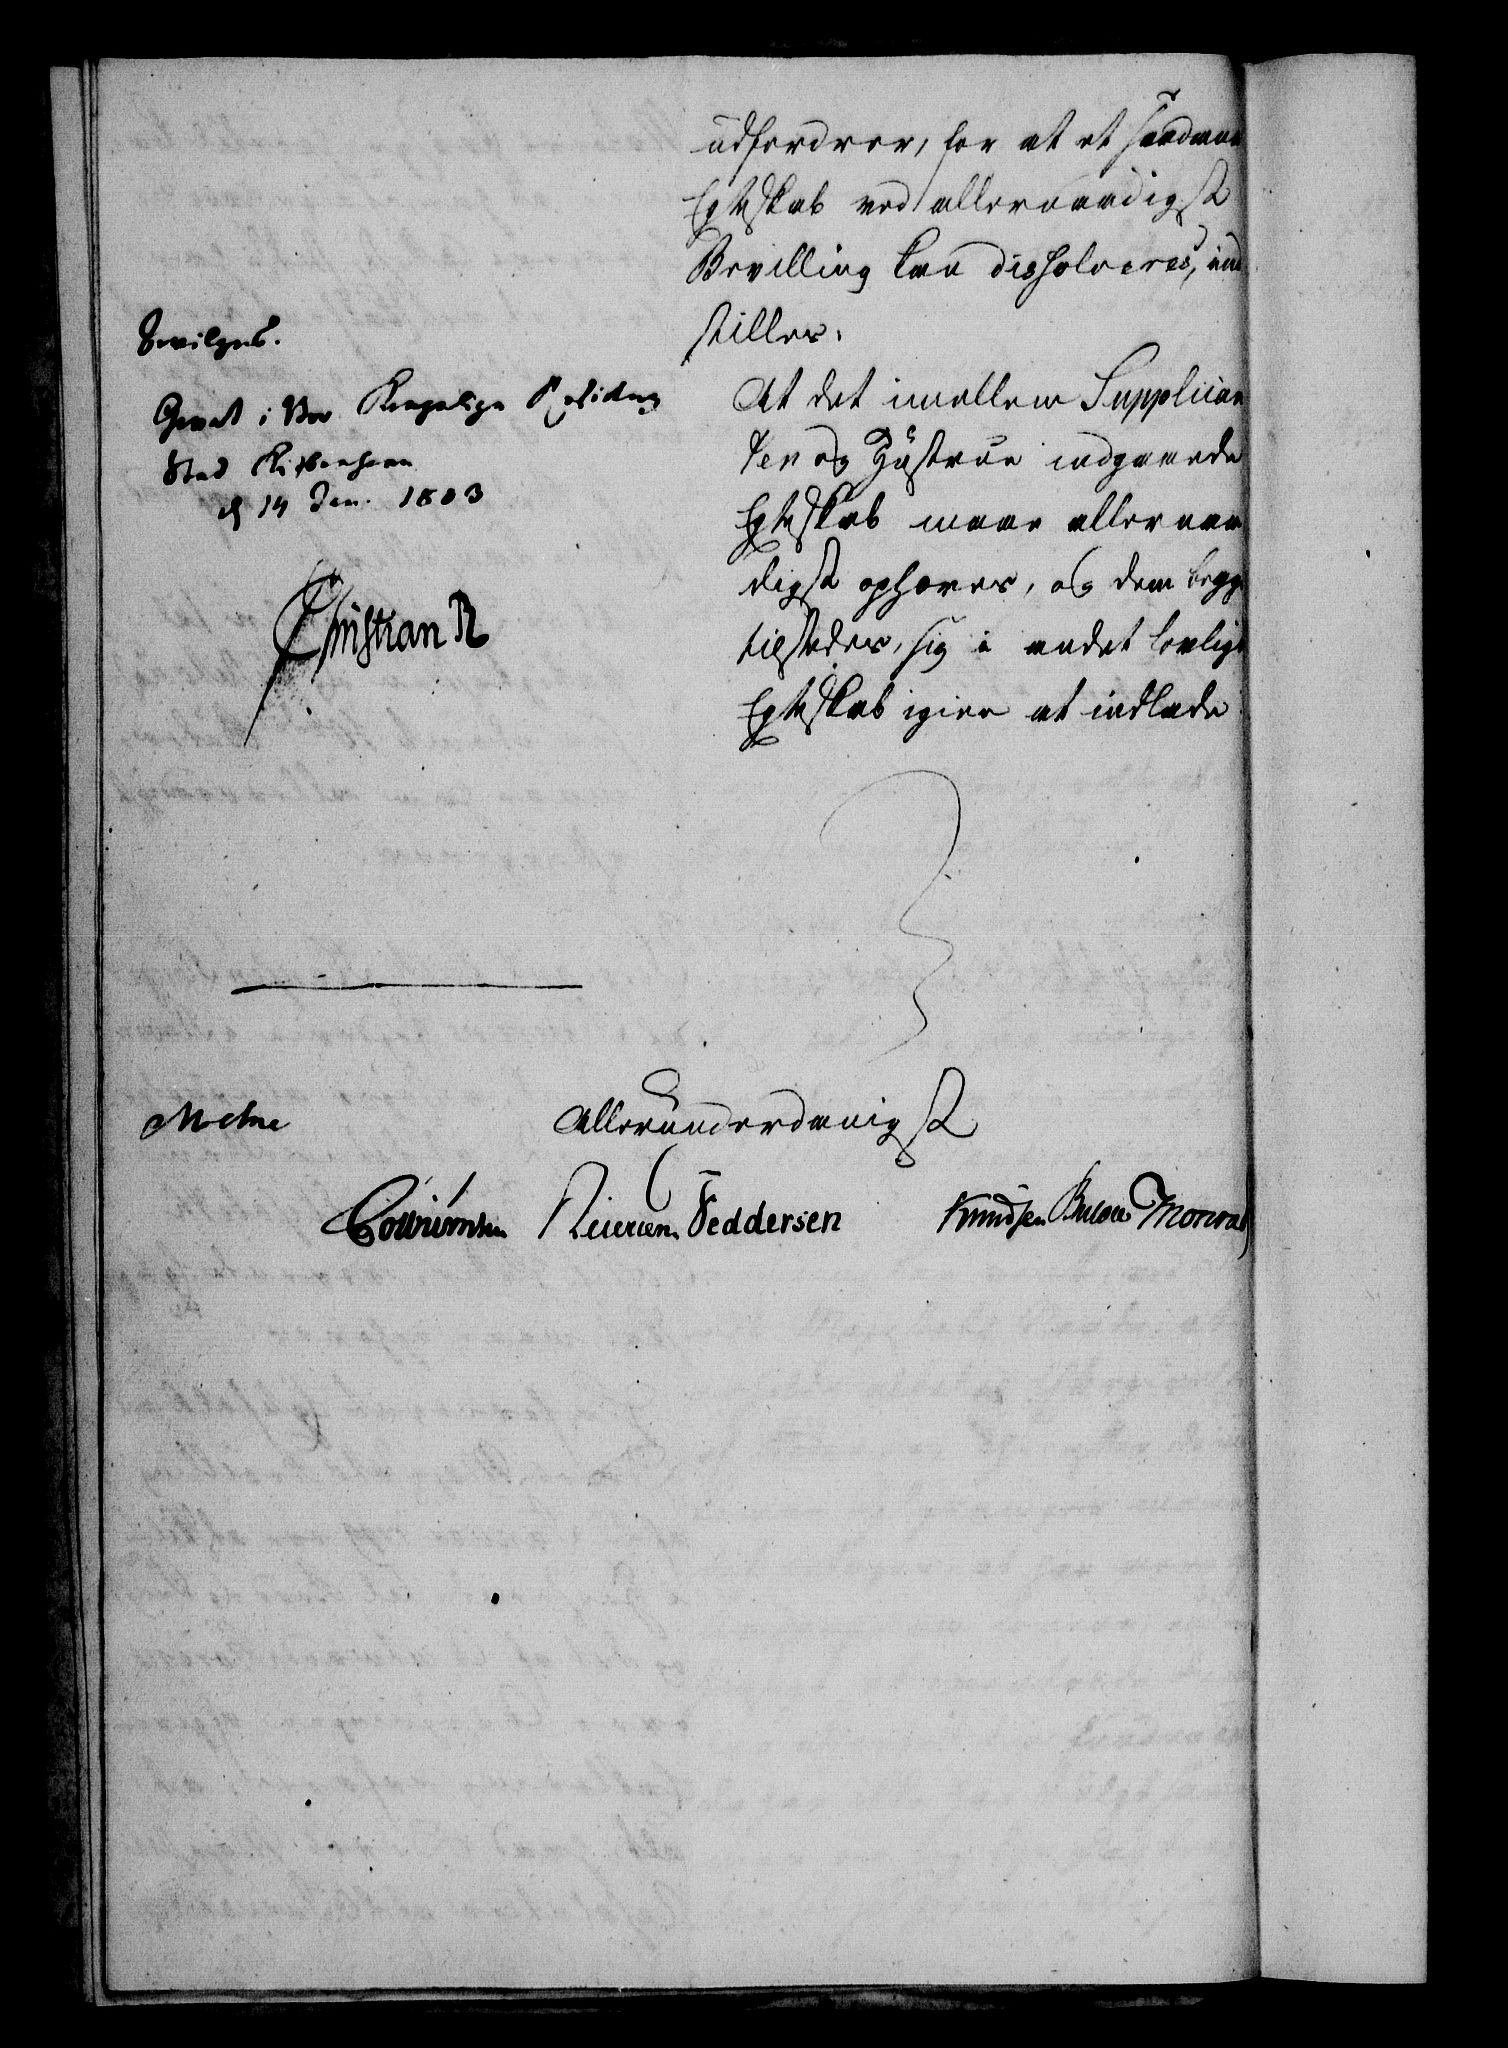 udfordrer, for at et saadant
Egteskab ved allernaadigst
Bevilling kan dissolveres, ind
stilles.
At det imellem Supplican
ten og Hustrue indgaaede
Egteskab maae allernaa
digst ophæves, og dem begge
tilstedes, sig i andet lovligt
Egteskab igien at indlade
Bevilges.
Givet i Vor Kongelige Residenz
Stad Kiøbenhavn
d 14 Jan. 1803
Christian R
Moltke
Allerunderdanigst
Feddersen
Knudsen Bülow Monrad